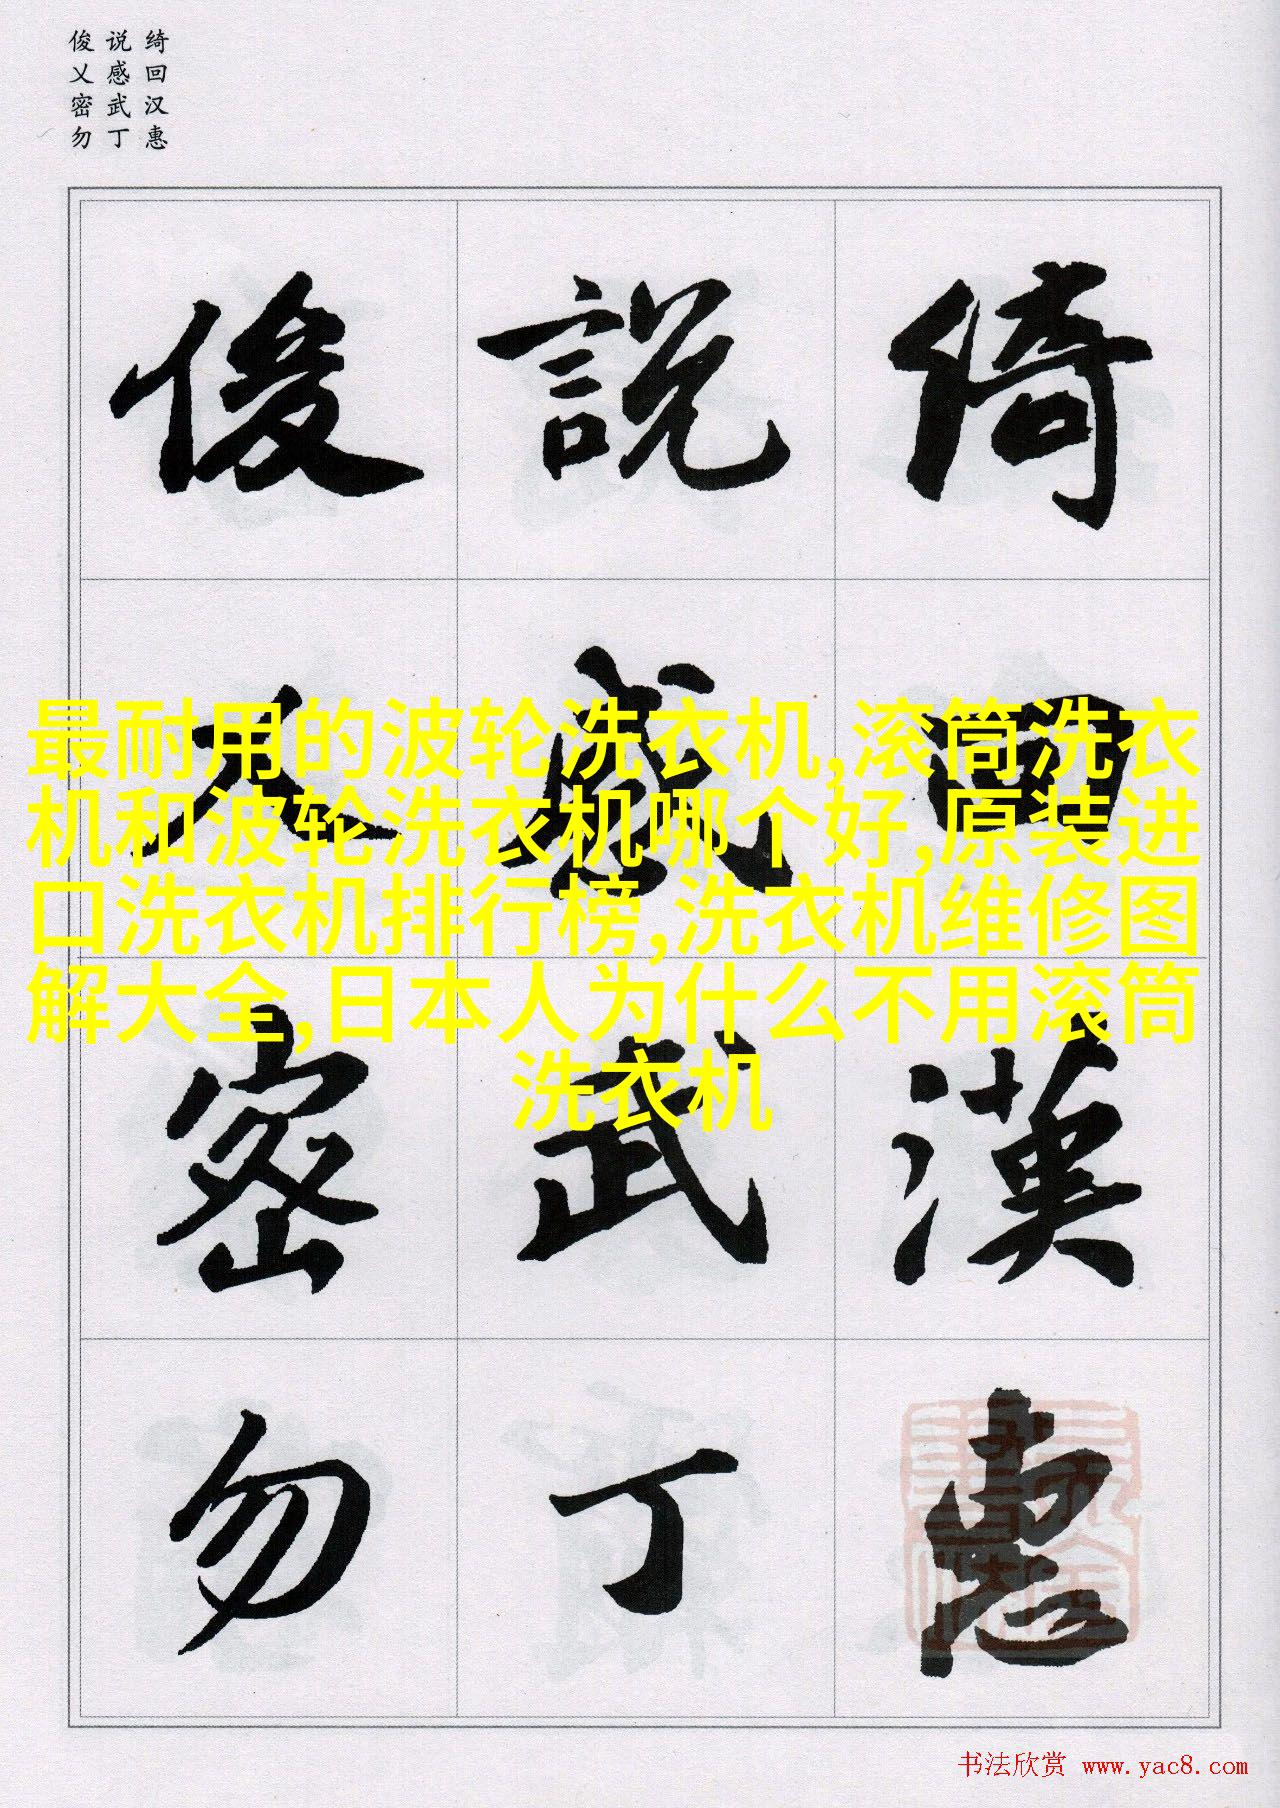 俊说绮
乂感回
密武汉
勿丁惠
俊說綺
乂感回
密武漢
勿丁惠
最耐用的波轮洗衣机,滚筒洗衣
机和波轮洗衣机哪个好,原装进
口洗衣机排行榜,洗衣机维修图
解大全,日本人为什么不用滚筒
洗衣机
书法欣赏 www.yac8.com